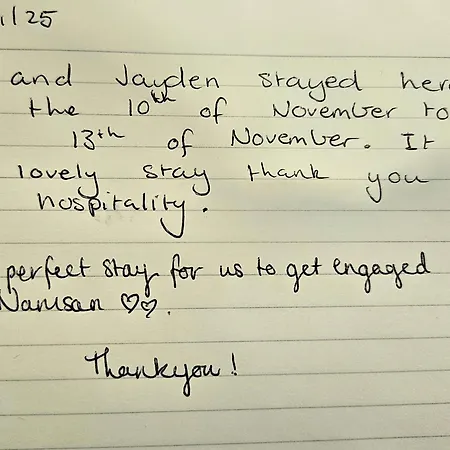 1/25
and Jayden stayed her
the 10th of November to
13th of November. It
lovely stay thank you
hospitality.
perfect stay for us to get engaged
Namsan ♡♡.
Thankyou!